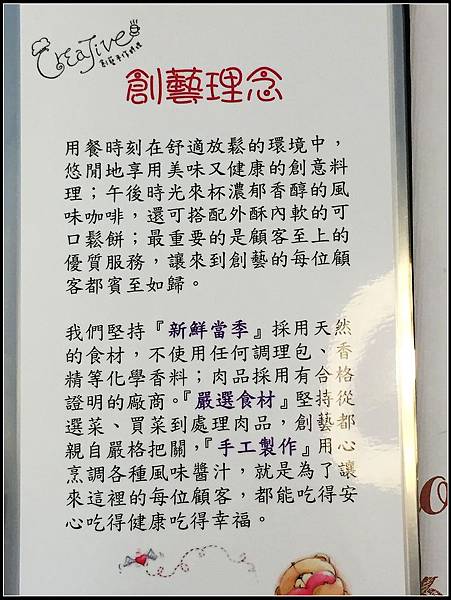 Creative
創藝理念
用餐時刻在舒適放鬆的環境中，
悠閒地享用美味又健康的創意料
理；午後時光來杯濃郁香醇的風
味咖啡，還可搭配外酥內軟的可
口鬆餅；最重要的是顧客至上的
優質服務，讓來到創藝的每位顧
客都賓至如歸。
我們堅持『新鮮當季』採用天然
的食材，不使用任何調理包、香
精等化學香料；肉品採用有合格
證明的廠商。『嚴選食材』堅持從
選菜、買菜到處理肉品，創藝都
親自嚴格把關，『手工製作』用心
烹調各種風味醬汁，就是為了讓
來這裡的每位顧客，都能吃得安
心吃得健康吃得幸福。